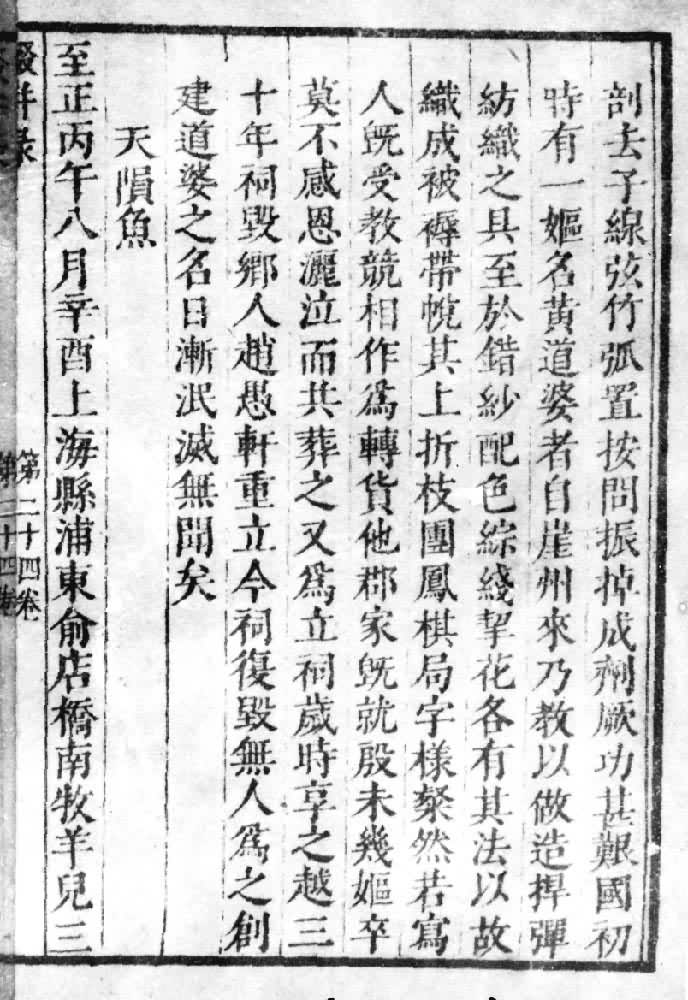 剖去子線弦竹弧置按間振掉成劑厥功甚艱國初
時有一嫗名黄道婆者自崖州來乃教以做造捍彈
紡織之具至於錯紗配色綜綫挈花各有其法以故
織成被褥帶帨其上折枝團鳳棋局字樣粲然若寫
人旣受教競相作爲轉貨他郡家旣就殷未幾嫗卒
莫不感恩灑泣而共葬之又爲立祠歲時享之越三
十年祠毀鄉人趙愚軒重立今祠復毀無人爲之創
建道婆之名日漸泯滅無聞矣
天隕魚
至正丙午八月辛酉上海縣浦東俞店橋南牧羊兒三
第二十四卷